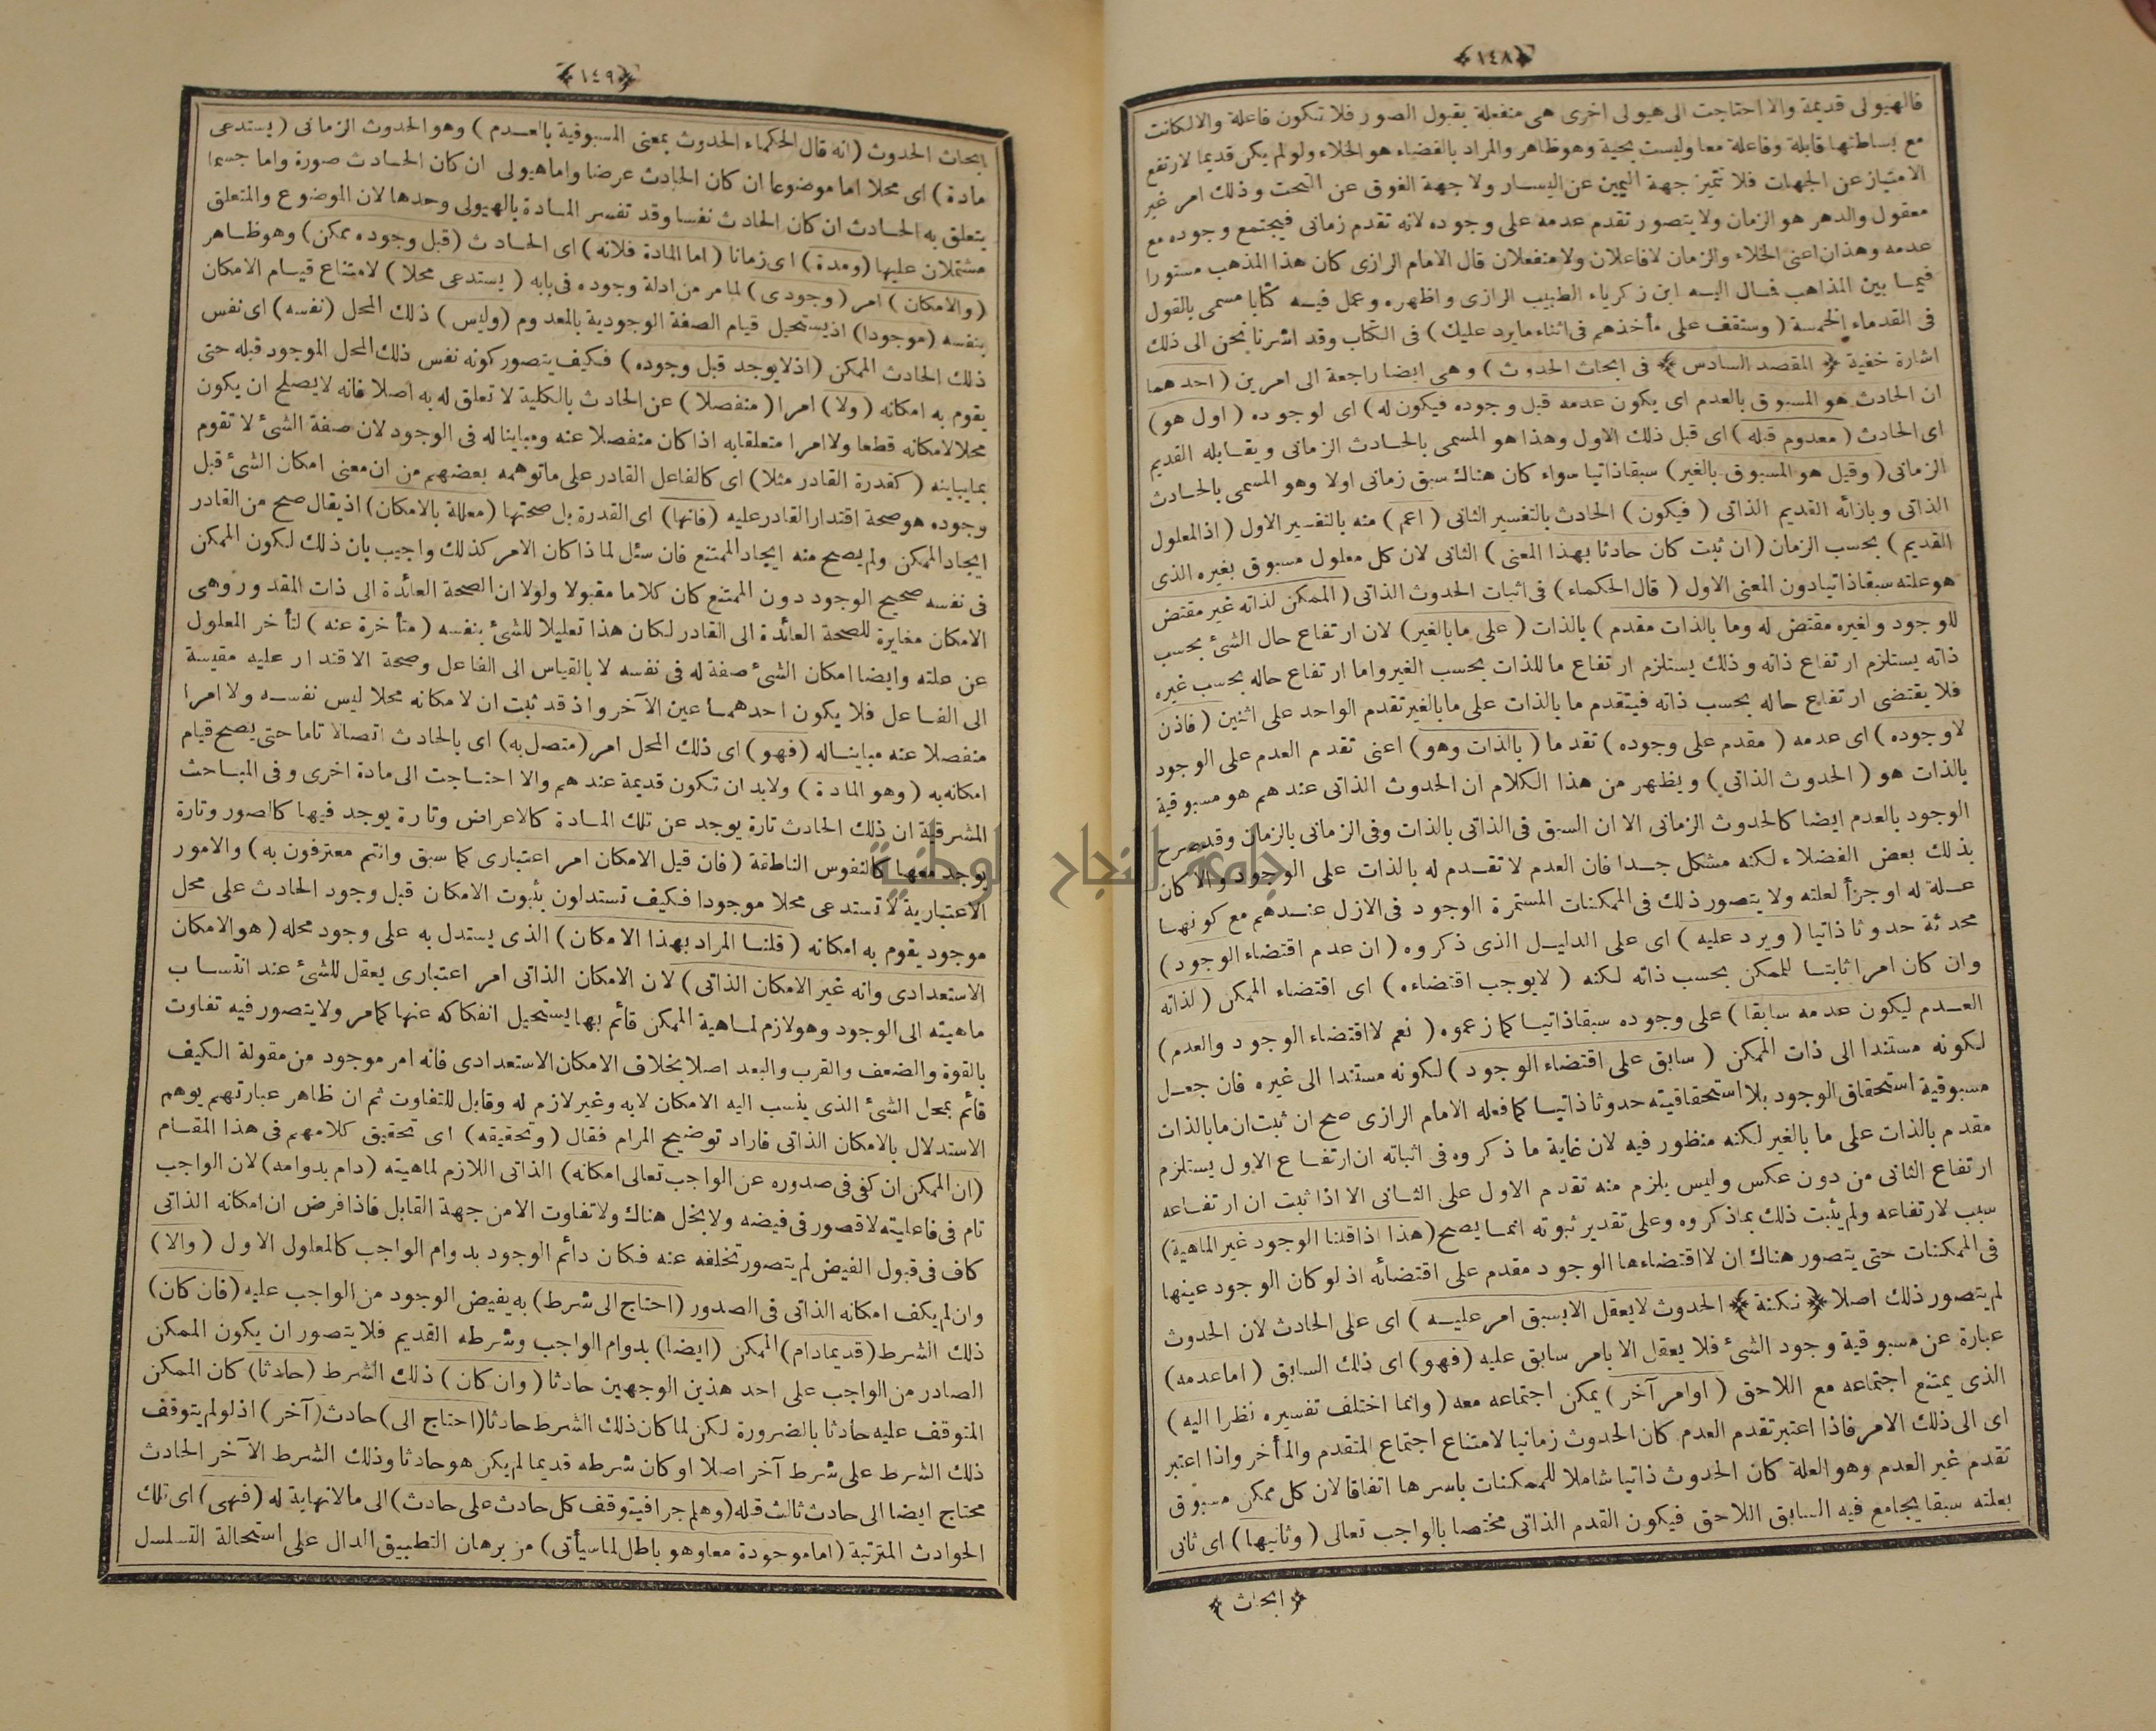 ﴿١٤٨﴾
فالهيولى قديمة والا احتاجت الى هيولى اخرى هى منفعلة بقبول الصور فلا تكون فاعلة والا لكانت
مع بساطتها قابلة وفاعلة معا وليست بحية وهو ظاهر والمراد بالفضاء هو الخلاء ولو لم يكن قديما لارتفع
الامتياز عن الجهات فلا تتميز جهة اليمين عن اليسار ولا جهة الفوق عن التحت وذلك امر غير
معقول والدهر هو الزمان ولا يتصور تقدم عدمه على وجوده لانه تقدم زمانى فيجتمع وجوده مع
عدمه وهذان اعنى الخلاء والزمان لا فاعلان ولا منفعلان قال الامام الرازى كان هذا المذهب مستورا
فيما بين المذاهب فمال اليه ابن زكرياء الطبيب الرازى واظهره وعمل فيه كتابا مسمى بالقول
فى القدماء الخمسة ( وستقف على مأخذهم فى اثناء ما يرد عليك ) فى الكتاب وقد اشرنا نحن الى ذلك
اشارة خفية ﴿ المقصد السادس ﴾ فى ابحاث الحدوث ) وهى ايضا راجعة الى امرين ( احدهما
ان الحادث هو المسبوق بالعدم اى يكون عدمه قبل وجوده فيكون له ) اى لوجوده ( اول هو )
اى الحادث ( معدوم قبله ) اى قبل ذلك الاول وهذا هو المسمى بالحادث الزمانى ويقابله القديم
الزمانى ( وقيل هو المسبوق بالغير ) سبقا ذاتيا سواء كان هناك سبق زمانى اولا وهو المسمى بالحادث
الذاتى وبازائه القديم الذاتى ( فيكون ) الحادث بالتفسير الثانى ( اعم ) منه بالتفسير الاول ( اذ المعلول
القديم ) بحسب الزمان ( ان ثبت كان حادثا بهذا المعنى ) الثانى لان كل معلول مسبوق بغيره الذى
هو علته سبقا ذاتيا دون المعنى الاول ( قال الحكماء ) فى اثبات الحدوث الذاتى ( الممكن لذاته غير مقتض
للوجود ولغيره مقتض له وما بالذات مقدم ) بالذات ( على ما بالغير ) لان ارتفاع حال الشئ بحسب
ذاته يستلزم ارتفاع ذاته وذلك يستلزم ارتفاع ما للذات بحسب الغير واما ارتفاع حاله بحسب غيره
فلا يقتضى ارتفاع حاله بحسب ذاته فيتقدم ما بالذات على ما بالغير تقدم الواحد على اثنين ( فاذن
لاوجوده ) اى عدمه ( مقدم على وجوده ) تقدما ( بالذات وهو ) اعنى تقدم العدم على الوجود
بالذات هو ( الحدوث الذاتى ) ويظهر من هذا الكلام ان الحدوث الذاتى عندهم هو مسبوقية
الوجود بالعدم ايضا كالحدوث الزمانى الا ان السبق فى الذاتى بالذات وفى الزمانى بالزمان وقد صرح
بذلك بعض الفضلاء لكنه مشكل جدا فان العدم لا تقدم له بالذات على الوجود والا كان
علة له او جزأ لعلته ولا يتصور ذلك فى الممكنات المستمرة الوجود فى الازل عندهم مع كونها
محدثة حدوثا ذاتيا ( ويرد عليه ) اى على الدليل الذى ذكروه ( ان عدم اقتضاء الوجود )
وان كان امرا ثابتا للممكن بحسب ذاته لكنه ( لا يوجب اقتضاءه ) اى اقتضاء الممكن ( لذاته
العدم ليكون عدمه سابقا ) على وجوده سبقا ذاتيا كما زعموه ( نعم لا اقتضاء الوجود والعدم )
لكونه مستندا الى ذات الممكن ( سابق على اقتضاء الوجود ) لكونه مستندا الى غيره فان جعل
مسبوقية استحقاق الوجود بلا استحقاقيته حدوثا ذاتيا كما فعله الامام الرازى صح ان ثبت ان ما بالذات
مقدم بالذات على ما بالغير لكنه منظور فيه لان غاية ما ذكروه فى اثباته ان ارتفاع الاول يستلزم
ارتفاع الثانى من دون عكس وليس يلزم منه تقدم الاول على الثانى الا اذا ثبت ان ارتفاعه
سبب لارتفاعه ولم يثبت ذلك بما ذكروه وعلى تقدير ثبوته انما يصح ( هذا اذا قلنا الوجود غير الماهية )
فى الممكنات حتى يتصور هناك ان لا اقتضاءها الوجود مقدم على اقتضائه اذ لو كان الوجود عينها
لم يتصور ذلك اصلا ﴿ نكتة ﴾ الحدوث لا يعقل الا بسبق امر عليه ) اى على الحادث لان الحدوث
عبارة عن مسبوقية وجود الشئ فلا يعقل الا بامر سابق عليه ( فهو ) اى ذلك السابق ( اما عدمه )
الذى يمتنع اجتماعه مع اللاحق ( او امر آخر ) يمكن اجتماعه معه ( وانما اختلف تفسيره نظرا اليه )
اى الى ذلك الامر فاذا اعتبر تقدم العدم كان الحدوث زمانيا لامتناع اجتماع المتقدم والمتأخر واذا اعتبر
تقدم غير العدم وهو العلة كان الحدوث ذاتيا شاملا للممكنات باسرها اتفاقا لان كل ممكن مسبوق
بعلته سبقا يجامع فيه السابق اللاحق فيكون القدم الذاتى مختصا بالواجب تعالى ( وثانيها ) اى ثانى
﴿ ابحاث ﴾
﴿١٤٩﴾
ابحاث الحدوث ( انه قال الحكماء الحدوث بمعنى المسبوقية بالعدم ) وهو الحدوث الزمانى ( يستدعى
مادة ) اى محلا اما موضوعا ان كان الحادث عرضا واما هيولى ان كان الحادث صورة واما جسما
يتعلق به الحادث ان كان الحادث نفسا وقد تفسر المادة بالهيولى وحدها لان الموضوع والمتعلق
مشتملان عليها ( ومدة ) اى زمانا ( اما المادة فلانه ) اى الحادث ( قبل وجوده ممكن ) وهو ظاهر
( والامكان ) امر ( وجودى ) لما مر من ادلة وجوده فى بابه ( يستدعى محلا ) لامتناع قيام الامكان
بنفسه ( موجودا ) اذ يستحيل قيام الصفة الوجودية بالمعدوم ( وليس ) ذلك المحل ( نفسه ) اى نفس
ذلك الحادث الممكن ( اذ لا يوجد قبل وجوده ) فكيف يتصور كونه نفس ذلك المحل الموجود قبله حتى
يقوم به امكانه ( ولا ) امرا ( منفصلا ) عن الحادث بالكلية لا تعلق له به اصلا فانه لا يصلح ان يكون
محلا لامكانه قطعا ولا امرا متعلقا به اذا كان منفصلا عنه ومباينا له فى الوجود لان صفة الشئ لا تقوم
بما يباينه ( كقدرة القادر مثلا ) اى كالفاعل القادر على ما توهمه بعضهم من ان معنى امكان الشئ قبل
وجوده هو صحة اقتدار القادر عليه ( فانها ) اى القدرة بل صحتها ( معللة بالامكان ) اذ يقال صح من القادر
ايجاد الممكن ولم يصح منه ايجاد الممتنع فان سئل لماذا كان الامر كذلك واجيب بان ذلك لكون الممكن
فى نفسه صحيح الوجود دون الممتنع كان كلاما مقبولا ولولا ان الصحة العائدة الى ذات المقدور وهى
الامكان مغايرة للصحة العائدة الى القادر لكان هذا تعليلا للشئ بنفسه ( متأخرة عنه ) لتأخر المعلول
عن علته وايضا امكان الشئ صفة له فى نفسه لا بالقياس الى الفاعل وصحة الاقتدار عليه مقيسة
الى الفاعل فلا يكون احدهما عين الآخر واذ قد ثبت ان لامكانه محلا ليس نفسه ولا امرا
منفصلا عنه مباينا له ( فهو ) اى ذلك المحل امر ( متصل به ) اى بالحادث اتصالا تاما حتى يصح قيام
امكانه به ( وهو المادة ) ولابد ان تكون قديمة عندهم والا احتاجت الى مادة اخرى وفى المباحث
المشرقية ان ذلك الحادث تارة يوجد عن تلك المادة كالاعراض وتارة يوجد فيها كالصور وتارة
يوجد معها كالنفوس الناطقة ( فان قيل الامكان امر اعتبارى كما سبق وانتم معترفون به ) والامور
الاعتبارية لا تستدعى محلا موجودا فكيف تستدلون بثبوت الامكان قبل وجود الحادث على محل
موجود يقوم به امكانه ( قلنا المراد بهذا الامكان ) الذى يستدل به على وجود محله ( هو الامكان
الاستعدادى وانه غير الامكان الذاتى ) لان الامكان الذاتى امر اعتبارى يعقل للشئ عند انتساب
ماهيته الى الوجود وهو لازم لماهية الممكن قائم بها يستحيل انفكاكه عنها كما مر ولا يتصور فيه تفاوت
بالقوة والضعف والقرب والبعد اصلا بخلاف الامكان الاستعدادى فانه امر موجود من مقولة الكيف
قائم بمحل الشئ الذى ينسب اليه الامكان لا به وغير لازم له وقابل للتفاوت ثم ان ظاهر عبارتهم يوهم
الاستدلال بالامكان الذاتى فاراد توضيح المرام فقال ( وتحقيقه ) اى تحقيق كلامهم فى هذا المقام
( ان الممكن ان كفى فى صدوره عن الواجب تعالى امكانه ) الذاتى اللازم لماهيته ( دام بدوامه ) لان الواجب
تام فى فاعليته لا قصور فى فيضه ولا بخل هناك ولا تفاوت الا من جهة القابل فاذا فرض ان امكانه الذاتى
كاف فى قبول الفيض لم يتصور تخلفه عنه فكان دائم الوجود بدوام الواجب كالمعلول الاول ( والا )
وان لم يكف امكانه الذاتى فى الصدور ( احتاج الى شرط ) به يفيض الوجود من الواجب عليه ( فان كان )
ذلك الشرط ( قديما دام ) الممكن ( ايضا ) بدوام الواجب وشرطه القديم فلا يتصور ان يكون الممكن
الصادر من الواجب على احد هذين الوجهين حادثا ( وان كان ) ذلك الشرط ( حادثا ) كان الممكن
المتوقف عليه حادثا بالضرورة لكن لما كان ذلك الشرط حادثا ( احتاج الى ) حادث ( آخر ) اذ لو لم يتوقف
ذلك الشرط على شرط آخر اصلا او كان شرطه قديما لم يكن هو حادثا وذلك الشرط الآخر الحادث
محتاج ايضا الى حادث ثالث قبله ( وهلم جرا فيتوقف كل حادث على حادث ) الى ما لانهاية له ( فهى ) اى تلك
الحوادث المترتبة ( اما موجودة معا وهو باطل لما سيأتى ) من برهان التطبيق الدال على استحالة التسلسل
جامعة النجاح الوطنية